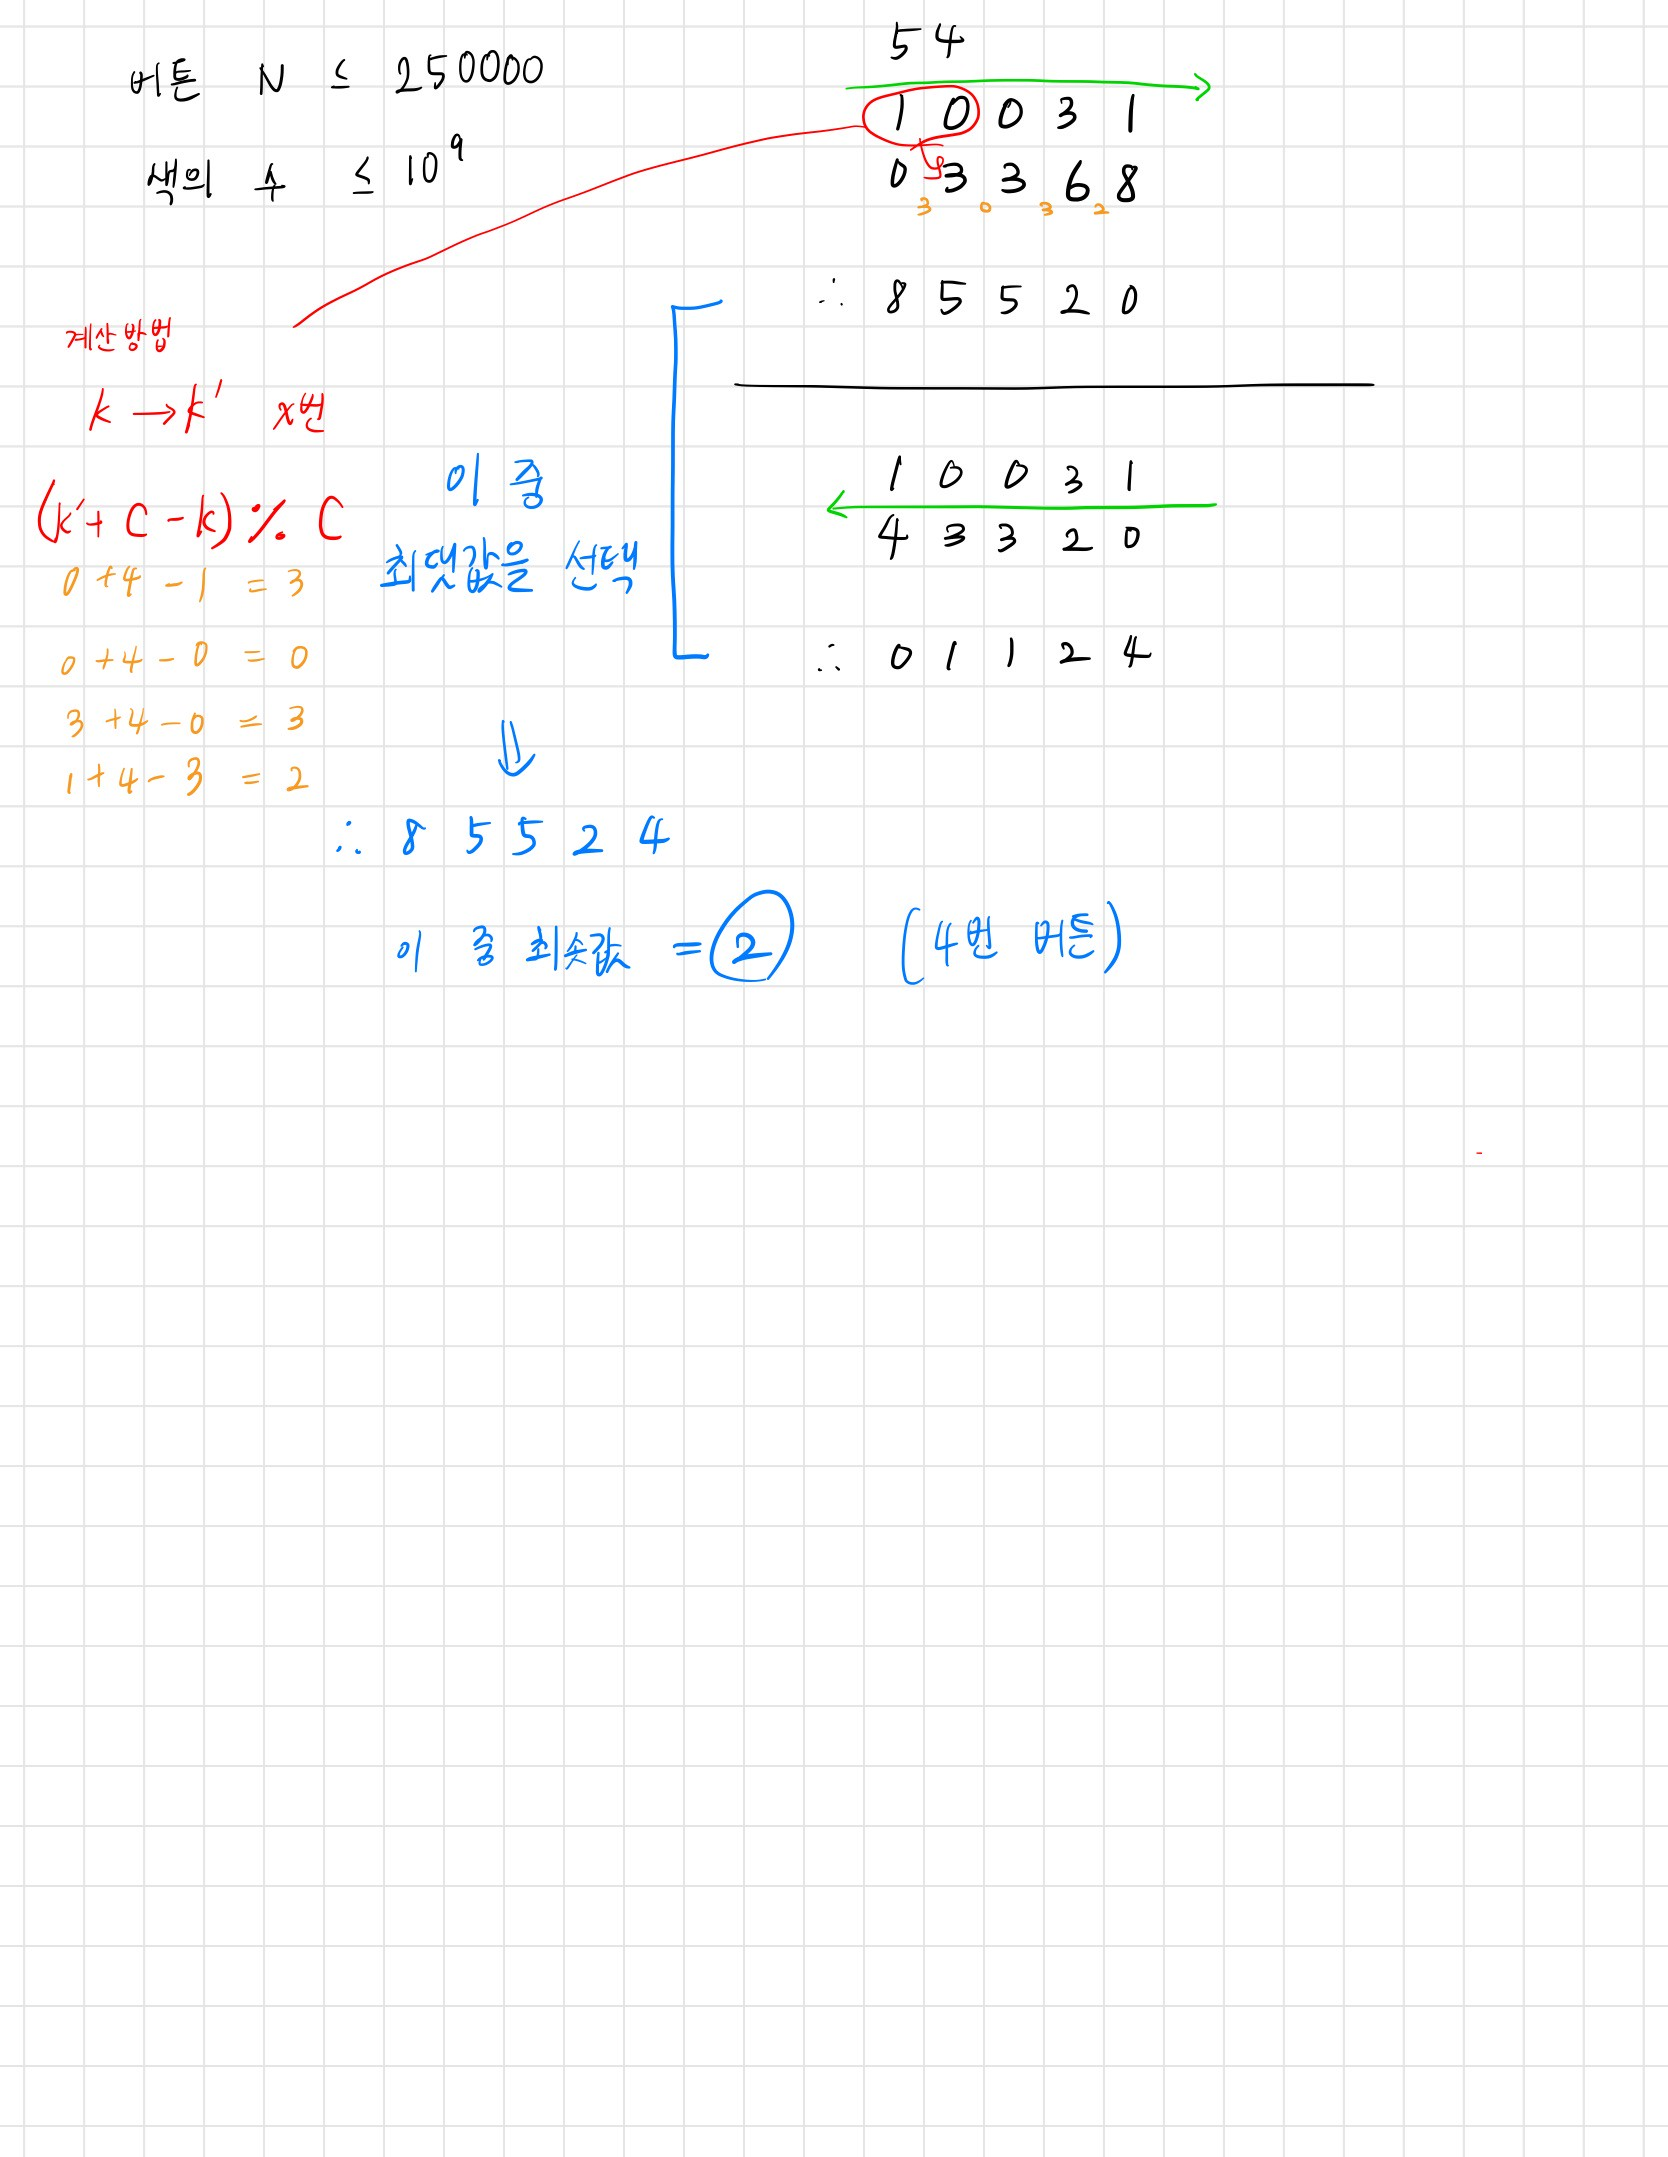 버튼 N ≤ 250000
색의 수 ≤ 10⁹
5 4
1 0 0 3 1
0 3 3 6 8
3 0 3 2
∴ 8 5 5 2 0
1 0 0 3 1
4 3 3 2 0
∴ 0 1 1 2 4
계산방법
k → k' x번
(k' + C - k) % C
0 + 4 - 1 = 3
0 + 4 - 0 = 0
3 + 4 - 0 = 3
1 + 4 - 3 = 2
이 중
최댓값을 선택
∴ 8 5 5 2 4
이 중 최솟값 = 2 (4번 버튼)